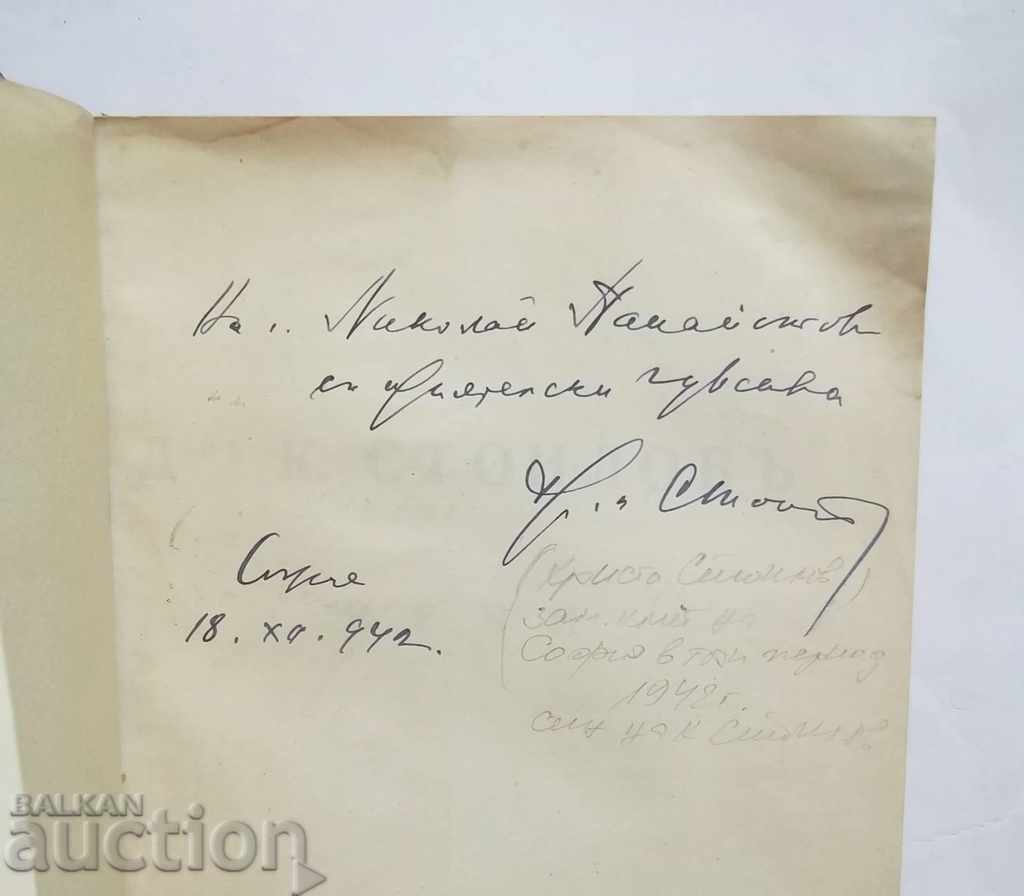 На г. Николай Панайотов
съ приятелски чувства
Хр. Стоянов
София
18. XII. 942.
(Христо Стоянов)
зам. кмет на
София в този период
1942 г.
син на К
BALKAN
auction